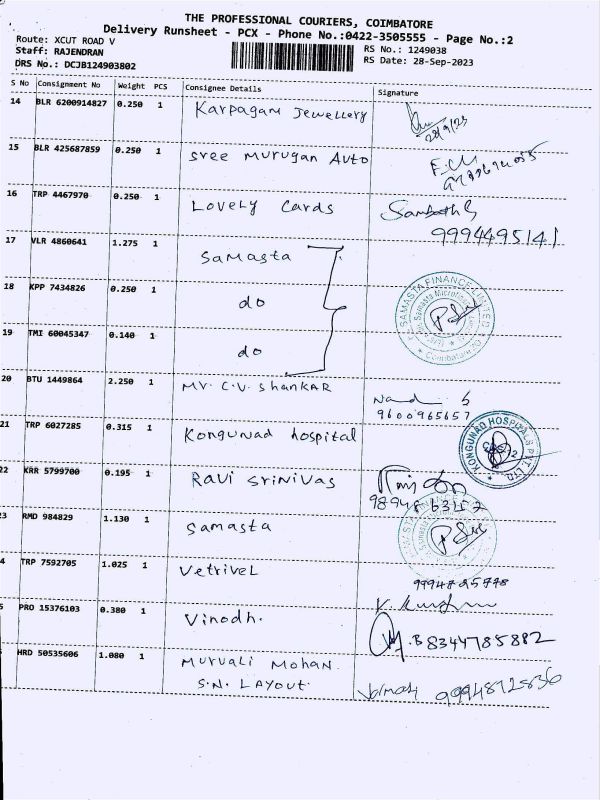 THE PROFESSIONAL COURIERS, COIMBATORE
Delivery Runsheet - PCX - Phone No.:0422-3505555 - Page No.:2
Route: XCUT ROAD V
RS No.: 1249038
Staff: RAJENDRAN
RS Date: 28-Sep-2023
DRS No.: DCJB124903802
S No Consignment No Weight PCS Consignee Details Signature
14 BLR 6200914827 0.250 1 Karpagam Jewellery
28/9/23
15 BLR 425687859 0.250 1 Sree Murugan Auto
16 TRP 4467970 0.250 1 Lovely Cards
9994495141
17 VLR 4860641 1.275 1 Samasta
18 KPP 7434826 0.250 1 do
SAMASTA FINANCE LIMITED
Coimbatore
19 TMI 60045347 0.140 1 do
20 BTU 1449864 2.250 1 Mr. C.V. Shankar
9600965657
21 TRP 6027285 0.315 1 Kongunad hospital
KONGUNAD HOSPITALS PVT. LTD.
22 KRR 5799700 0.195 1 Ravi Srinivas
23 RMD 984829 1.130 1 Samasta
4 TRP 7592705 1.025 1 Vetrivel
PRO 15376103 0.380 1 Vinodh.
8344785882
HRD 50535606 1.080 1 Murali Mohan.
S.N. Layout.